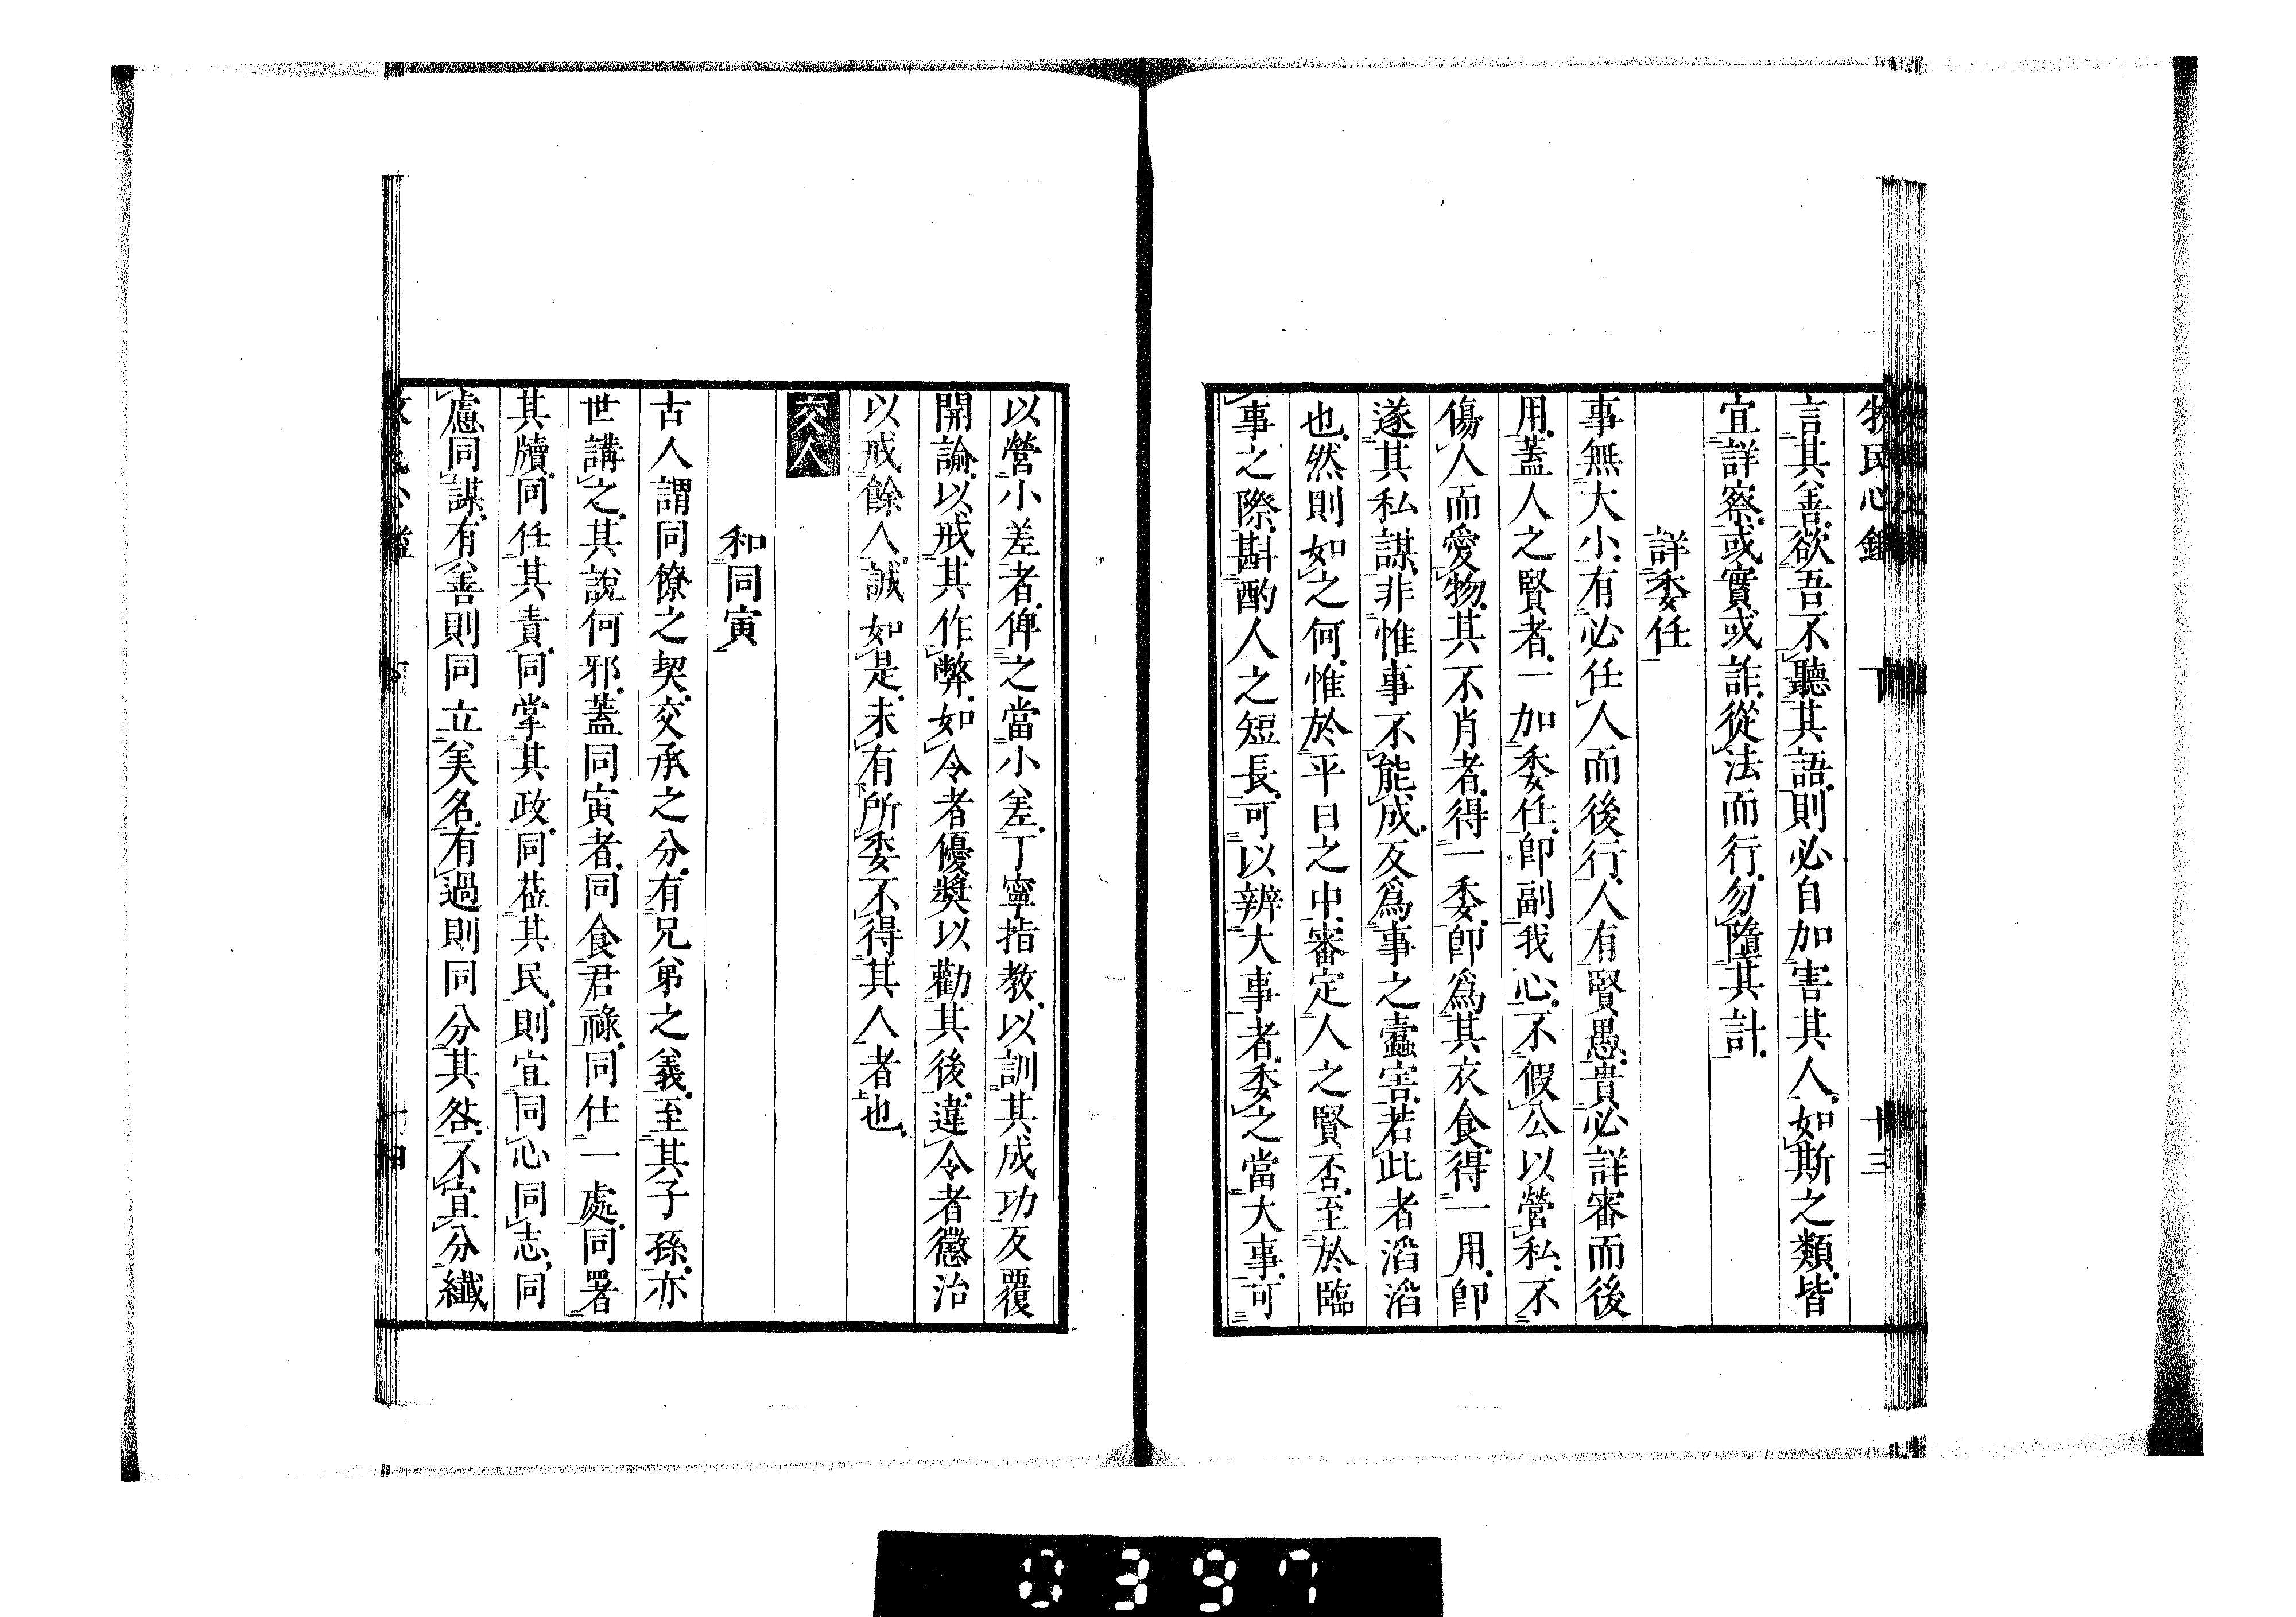 牧民心鑑　下　十三
言其善欲吾不聽其語則必自加害其人如斯之類皆
宜詳察或實或詐從法而行勿墮其計
詳委任
事無大小有必任人而後行人有賢愚貴必詳審而後
用蓋人之賢者一加委任即副我心不假公以營私不
傷人而愛物其不肖者得一委即爲其衣食得一用即
遂其私謀非惟事不能成反爲事之蠹害若此者滔滔
也然則如之何惟於平日之中審定人之賢否至於臨
事之際斟酌人之短長可以辨大事者委之當大事可
以營小差者俾之當小差丁寧指教以訓其成功反覆
開諭以戒其作弊如令者優奬以勸其後違令者懲治
以戒餘人誠如是未有所委不得其人者也
交人
和同寅
古人謂同僚之契交承之分有兄弟之義至其子孫亦
世講之其說何邪蓋同寅者同食君祿同仕一處同署
其牘同任其責同掌其政同蒞其民則宜同心同志同
慮同謀有善則同立美名有過則同分其咎不宜分纖
0397